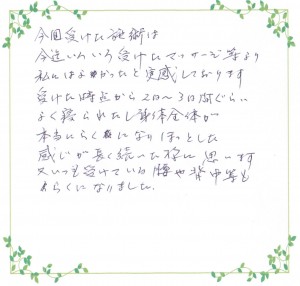 今回受けた施術は
今迄いろいろ受けたマッサージ等より
私にはよかったと実感しております
受けた時点から2日〜3日間ぐらい
よく寝られたし身体全体が
本当にらくになりほっとした
感じが長く続いた様に思います
又いつも受けている腰や背中等も
らくになりました。